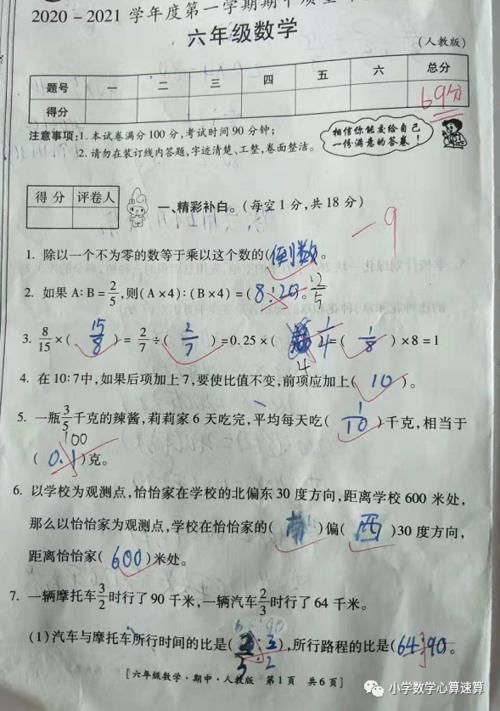 2020-2021学年度第一学期期中质
六年级数学
(人教版)
题号 一 二 三 四 五 六 总分
得分 69分
注意事项:1.本试卷满分100分,考试时间90分钟;
2.请勿在装订线内答题,字迹清楚、工整,卷面整洁。
相信你能交给自己
一份满意的答卷!
得分 评卷人
一、精彩补白。(每空1分,共18分)
-9
1. 除以一个不为零的数等于乘以这个数的(倒数)。
2. 如果A:B=2/5,则(A×4):(B×4)=(8:20)。
3. 8/15×(15/8)=2/7÷(2/7)=0.25×(1/4 4)=(1/8)×8=1
4. 在10:7中,如果后项加上7,要使比值不变,前项应加上(10)。
5. 一瓶3/5千克的辣酱,莉莉家6天吃完,平均每天吃(1/10)千克,相当于
100
(0.1)克。
6. 以学校为观测点,怡怡家在学校的北偏东30度方向,距离学校600米处,
那么以怡怡家为观测点,学校在怡怡家的(南)偏(西)30度方向,
距离怡怡家(600)米处。
7. 一辆摩托车3/2时行了90千米,一辆汽车2/3时行了64千米。
(1)汽车与摩托车所行时间的比是( ),所行路程的比是(64:90)。
[六年级数学·期中·人教版 第1页 共6页]
小学数学心算速算